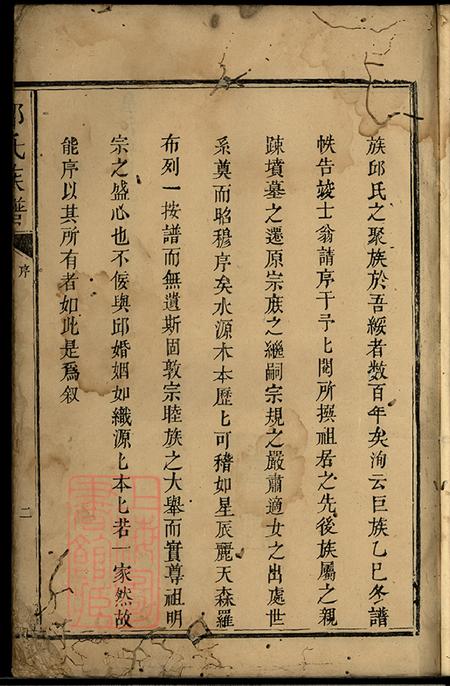 族邱氏之聚族於吾綏者数百年矣洵云巨族乙巳冬譜
帙告竣士翁請序于予匕閱所撰祖居之先後族屬之親
踈墳墓之遷原宗庻之繼嗣宗規之嚴肅適女之出處世
系奠而昭穆序矣水源木本歷匕可稽如星辰麗天森羅
布列一按譜而無遺斯固敦宗睦族之大舉而實尊祖明
宗之盛心也不佞與邱婚姻如織源匕本匕若一家然故
能序以其所有者如此是爲叙
邱氏族譜
序
二